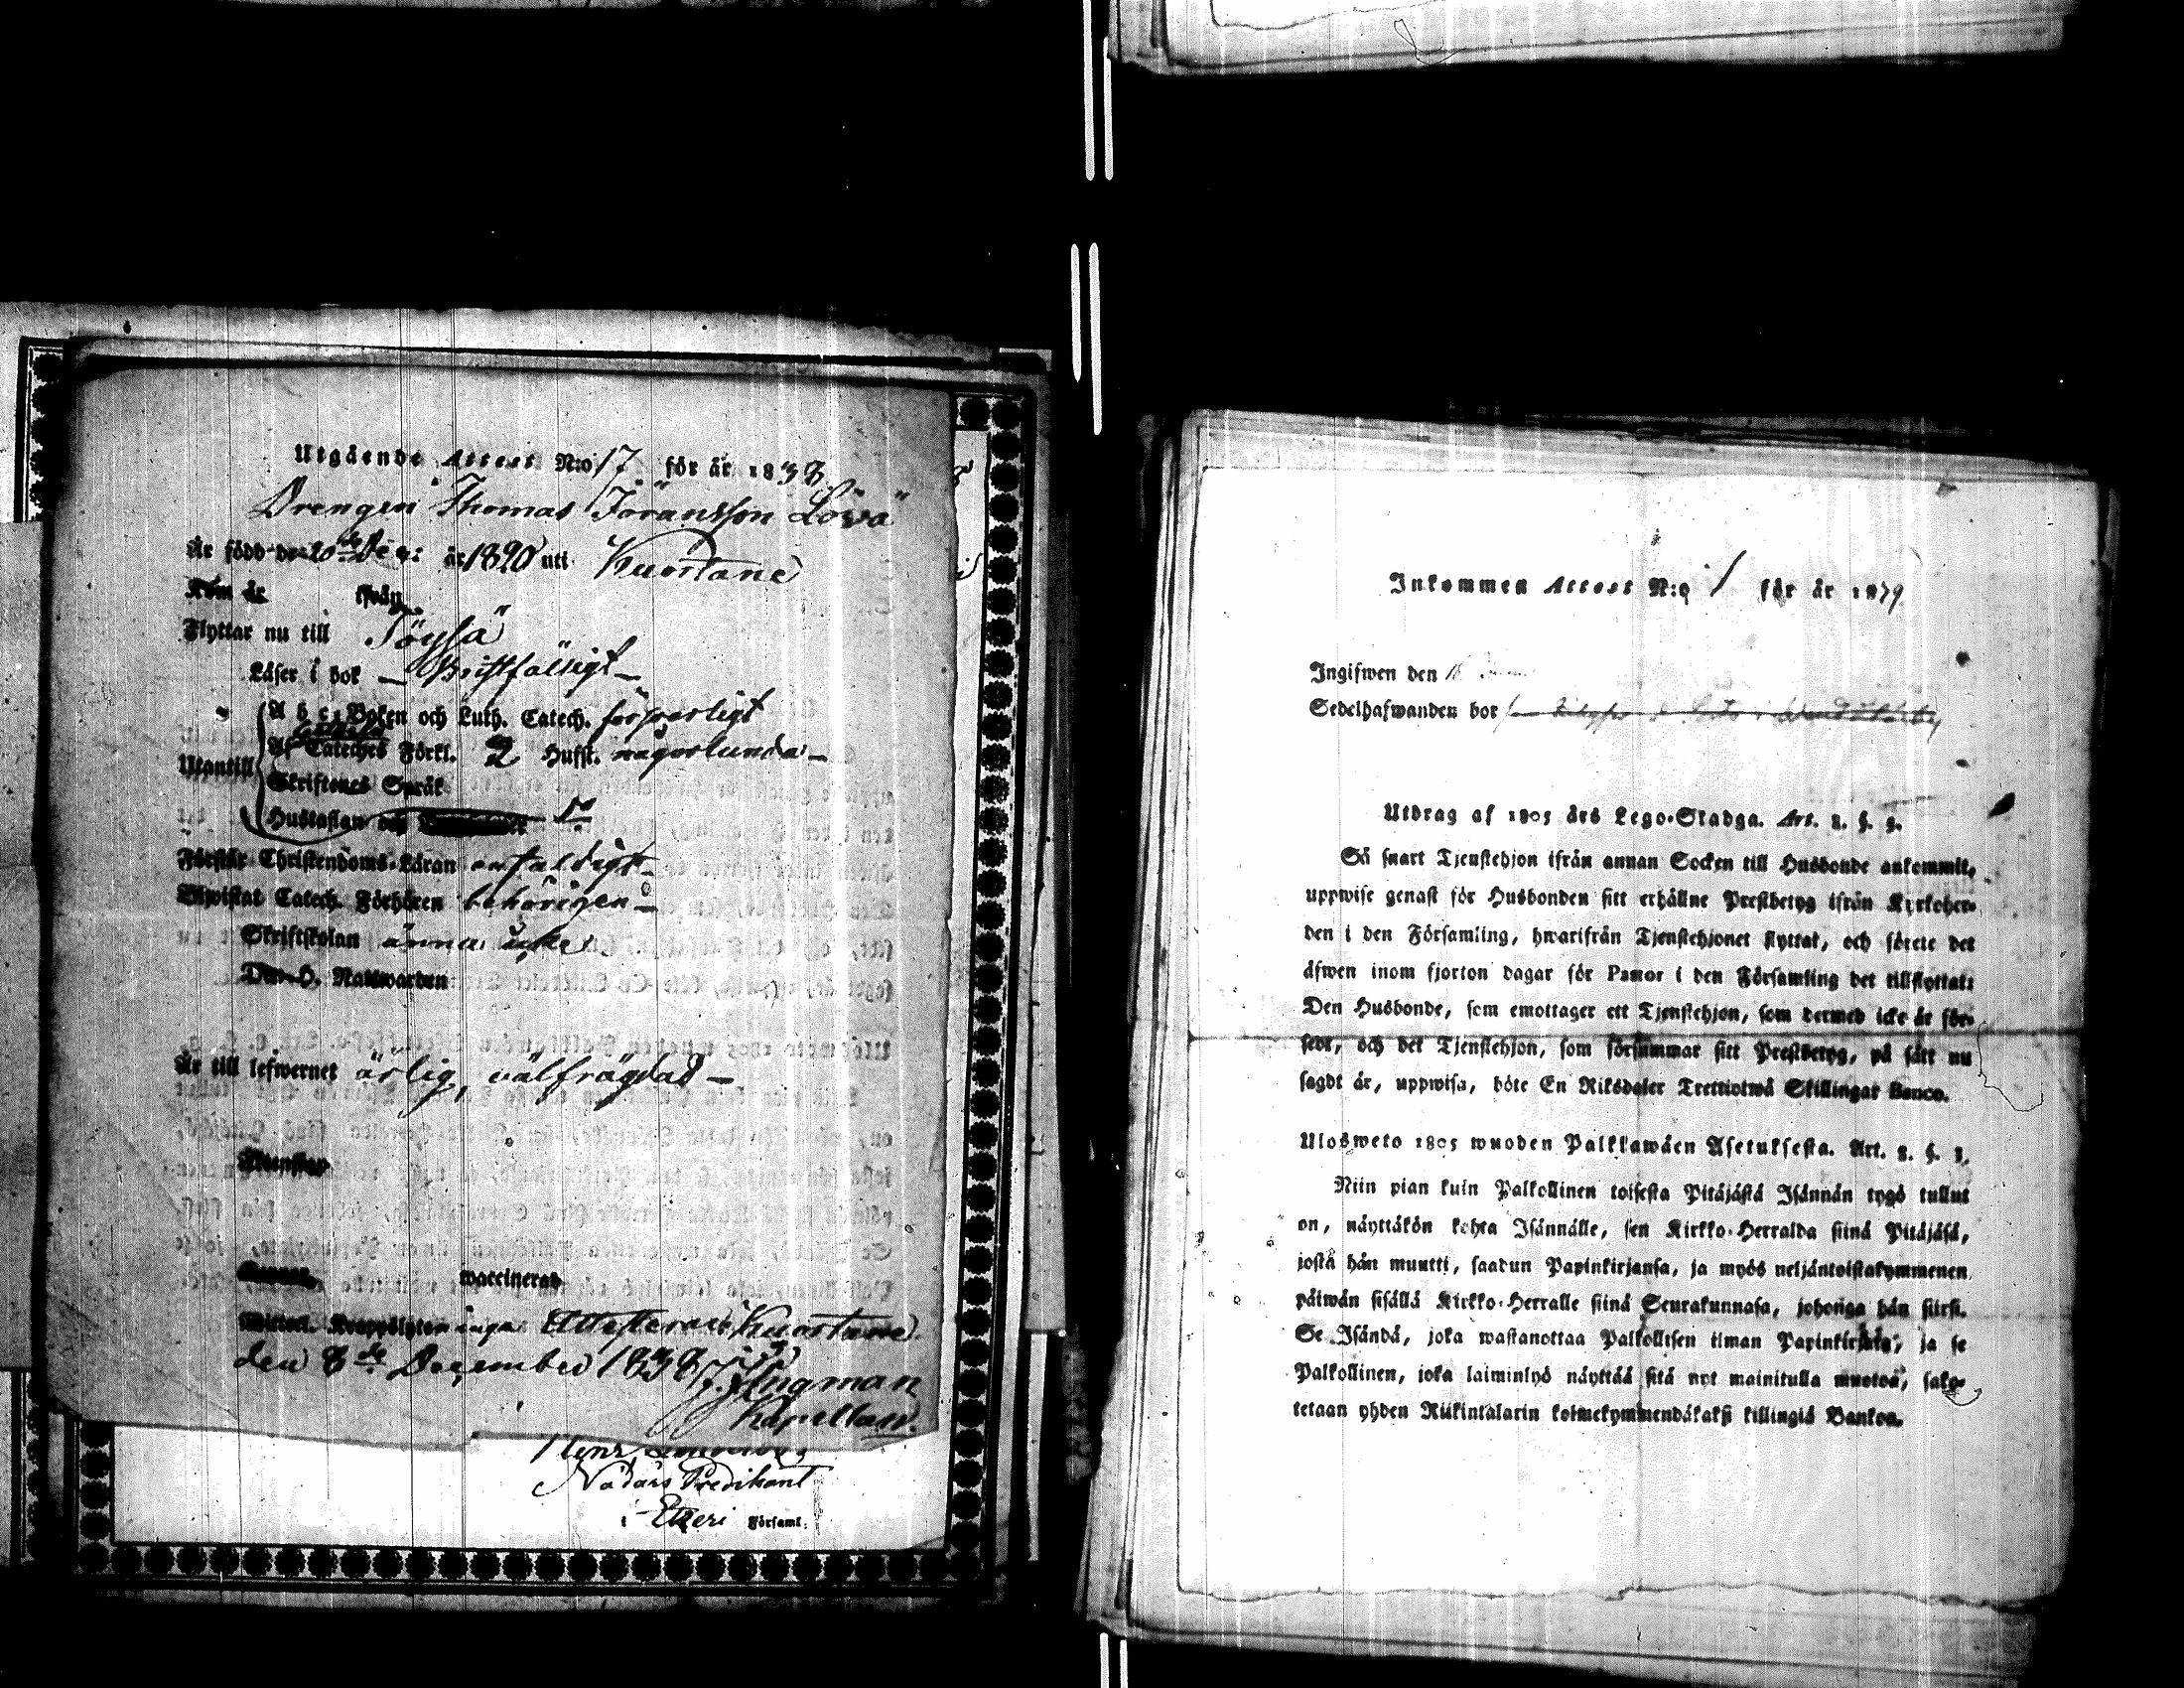 Utgående Attest N:o 17 för år 1838
Drengen Thomas Jöransson Löswä
Är född den 20de Dec: år 1820 uti Kuortane
Kom år ifrån
Flyttar nu till Töysä
Läser i bok — Bristfälligt —
Utantill
A b c-Boken och Luth. Catech. försvarligt
Af Cateches Förkl. 2 Hufst. någorlunda —
Skriftenes Språk
Hustaflan och
Förstår Christendoms-Läran enfaldigt —
Biwistat Catech. Förhören behörigen —
Skriftskolan ännu icke
Den H. Nattwarden
Är till lefwernet ärlig, välfrägdad —
vaccinerad
inga Attesterar Kuortane
den 8de December 1838 J. Ingman
Kapellan.
Nådårs Predikant
i Etseri Församl:
Inkommen Attest N:o 1 för år 1879
Ingifwen den 16
Sedelhafwanden bor
Utdrag af 1805 års Lego-Stadga. Art. 2. §. 3.
Så snart Tjenstehjon ifrån annan Socken till Husbonde ankommit,
uppwise genast för Husbonden sitt erhållne Prestbetyg ifrån Kyrkoher-
den i den Församling, hwarifrån Tjenstehjonet flyttat, och förete det
äfwen inom fjorton dagar för Pastor i den Församling det tillflyttat:
Den Husbonde, som emottager ett Tjenstehjon, som dermed icke är för-
sedt, och det Tjenstehjon, som försummar sitt Prestbetyg, på sätt nu
sagdt är, uppwisa, böte En Riksdaler Trettiotwå Skillingar Banco.
Ulosweto 1805 wuoden Palkkawäen Asetuksesta. Art. 2. §. 3.
Niin pian kuin Palkollinen toisesta Pitäjästä Isännän tygö tullut
on, näyttäkön kohta Isännälle, sen Kirkko-Herralda siinä Pitäjäsä,
josta hän muutti, saadun Papinkirjansa, ja myös neljäntoistakymmenen
päiwän sisällä Kirkko-Herralle siinä Seurakunnasa, johonga hän siirsi.
Se Isändä, joka wastanottaa Palkollisen ilman Papinkirjata, ja se
Palkollinen, joka laiminlyö näyttää sitä nyt mainitulla muotoa, sako-
tetaan yhden Riikintalarin kolmekymmendäkaksi killingiä Bankoa.